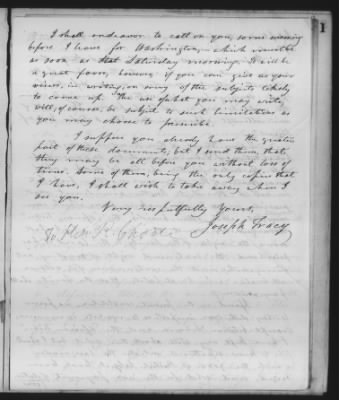 I shall endeavor to call on you, some evening
before I leave for Washington, which must be
as soon as that Saturday morning. It will be
a great favor, however, if you can give us your
views, in writing, on any of the subjects likely
to come up. The use of what you may write,
will, of course, be subject to such limitations as
you may choose to prescribe.
I suppose you already have the greater
part of these documents, but I send them, that
they may be all before you without loss of
time. Some of them, being the only copies that
I have, I shall wish to take away when I
see you.
Very respectfully Yours,
Joseph Tracy
To Hon. R. Choate